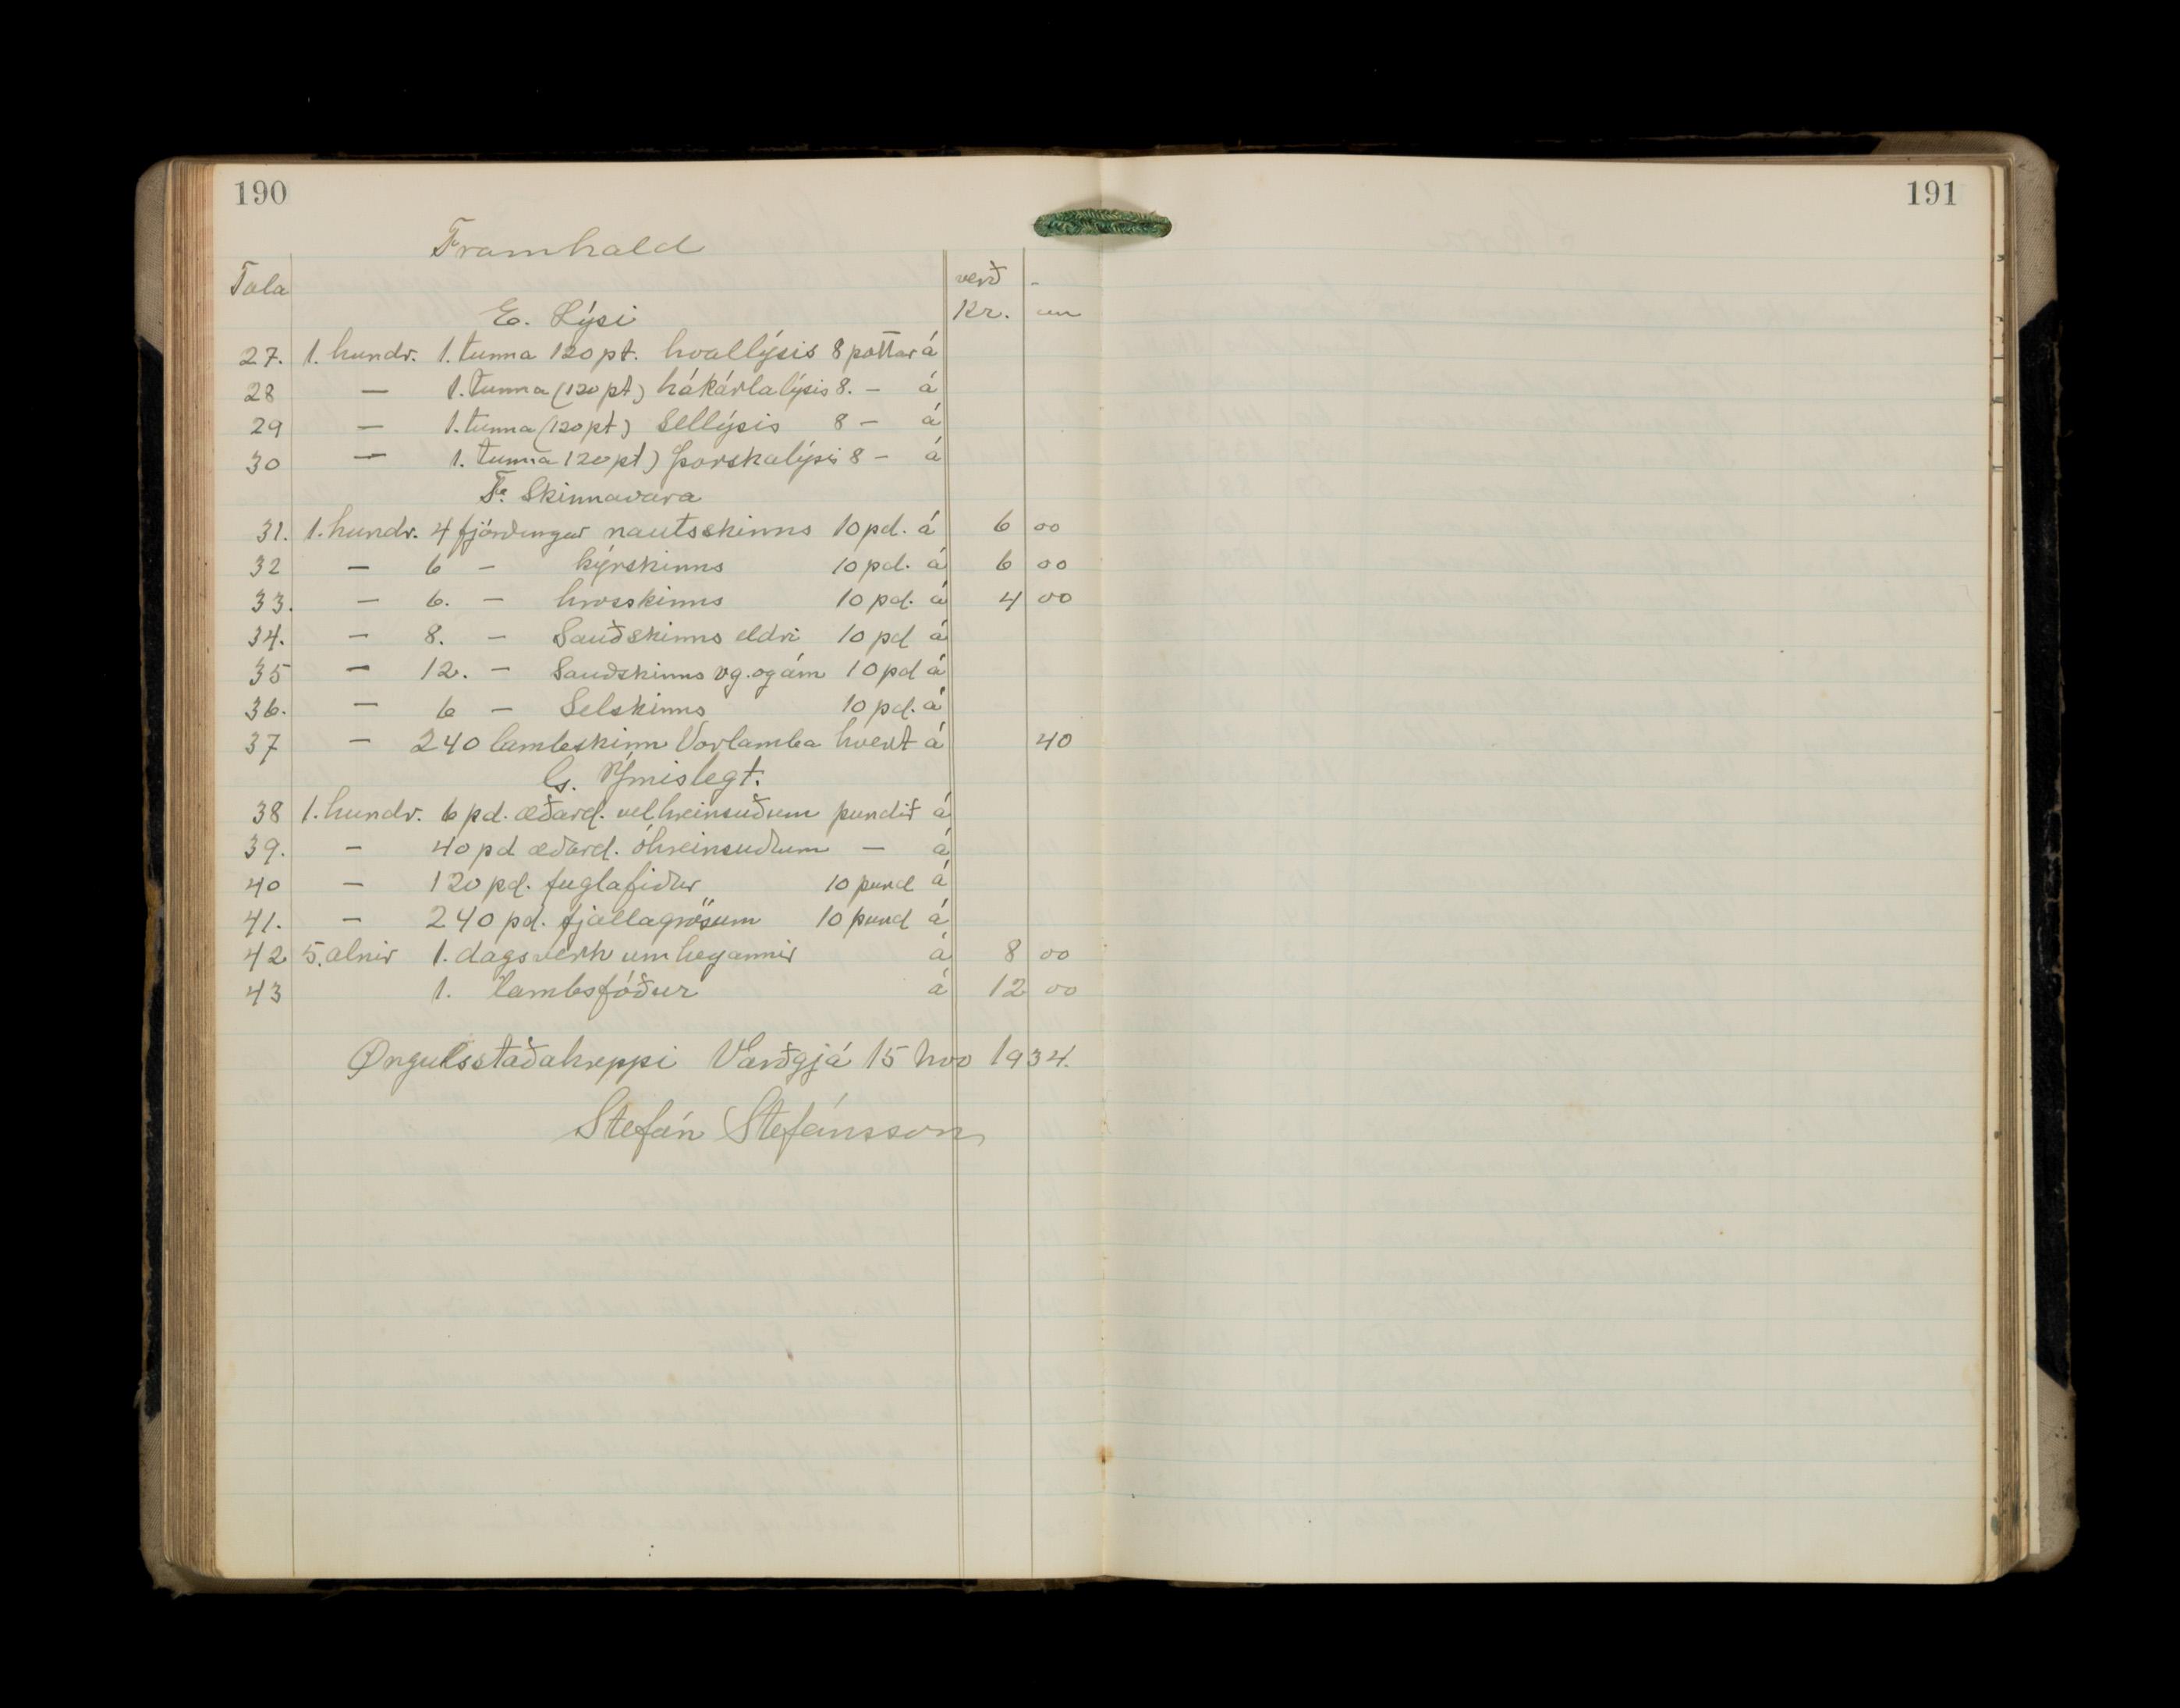 190
191
Framhald
Tala verð -
E. Lýsi Kr. au
27. 1. hundr. 1. tunna 120 pt. hvallýsis 8 pottar á
28 — 1. tunna (120 pt) hákárlalýsis 8. - á
29 — 1. tunna (120 pt) Sellýsis 8 - á
30 — 1. tunna 120 pt) þorskalýsis 8 - á
F. Skinnavara
31. 1. hundr. 4 fjórðungar nautsskinns 10 pd. á 6 00
32 — 6 - kýrskinns 10 pd. á 6 00
33. — 6. - hrosskinns 10 pd. á 4 00
34. — 8. - Sauðskinns eldri 10 pd á
35 — 12. - Sauðskinns vg. og ám 10 pd á
36. — 6 - Selskinns 10 pd. á
37 — 240 lambskinn Vorlamba hvert á 40
G. Ýmislegt.
38 1. hundr. 6 pd. æðard. vel hreinsuðum pundið á
39. - 40 pd æðard. óhreinsuðum — á
40 — 120 pd. fuglafiður 10 pund á
41. — 240 pd. fjallagrösum 10 pund á
42 5. alnir 1. dagsverk um heyannir á 8 00
43 1. lambsfóður á 12 00
Øngulsstaðahreppi Varðgjá 15 nov 1934.
Stefán Stefánsson